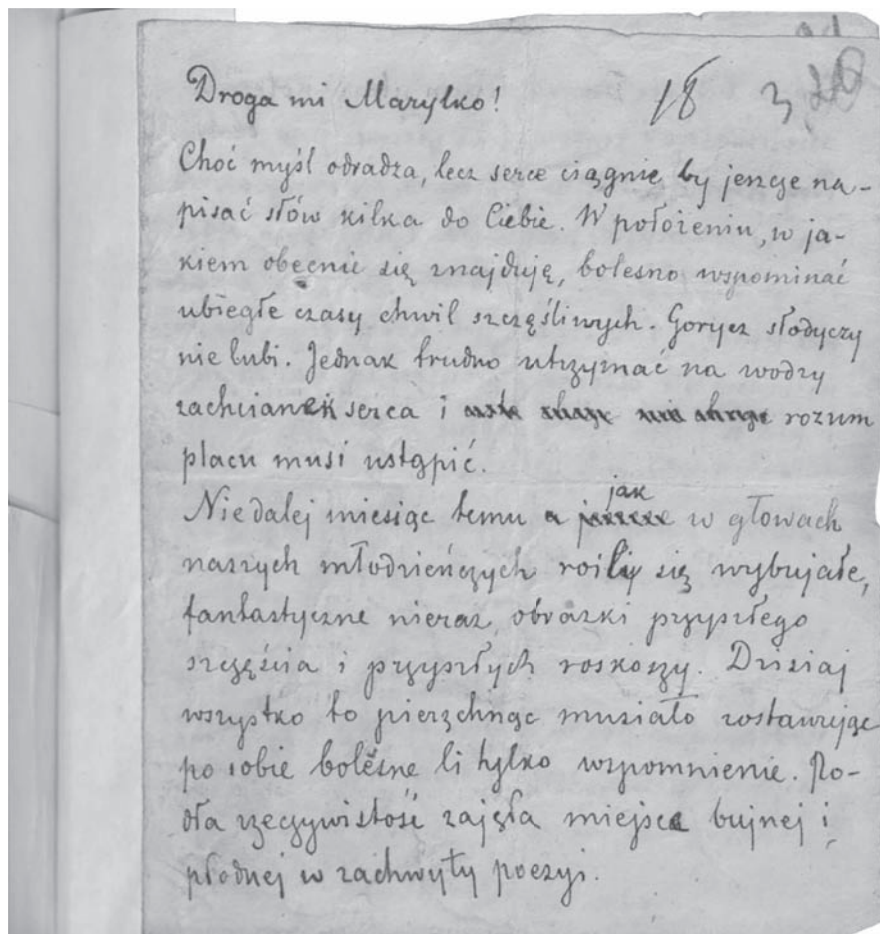 Droga mi Marylko! 18 3
Choć myśl odradza, lecz serce ciągnie by jeszcze na-
pisać słów kilka do Ciebie. W położeniu, w ja-
kiem obecnie się znajduję, bolesno wspominać
ubiegłe czasy chwil szczęśliwych. Gorycz słodyczy
nie lubi. Jednak trudno utrzymać na wodzy
zachcianek serca i rozum
placu musi ustąpić.
Niedalej miesiąc temu a jak w głowach
naszych młodzieńczych roiły się wybujałe,
fantastyczne nieraz, obrazki przyszłego
szczęścia i przyszłych roskoszy. Dzisiaj
wszystko to pierzchnąc musiało zostawiając
po sobie bolesne li tylko wspomnienie. Po-
dła rzeczywistość zajęła miejsce bujnej i
płodnej w zachwyty poezyi.